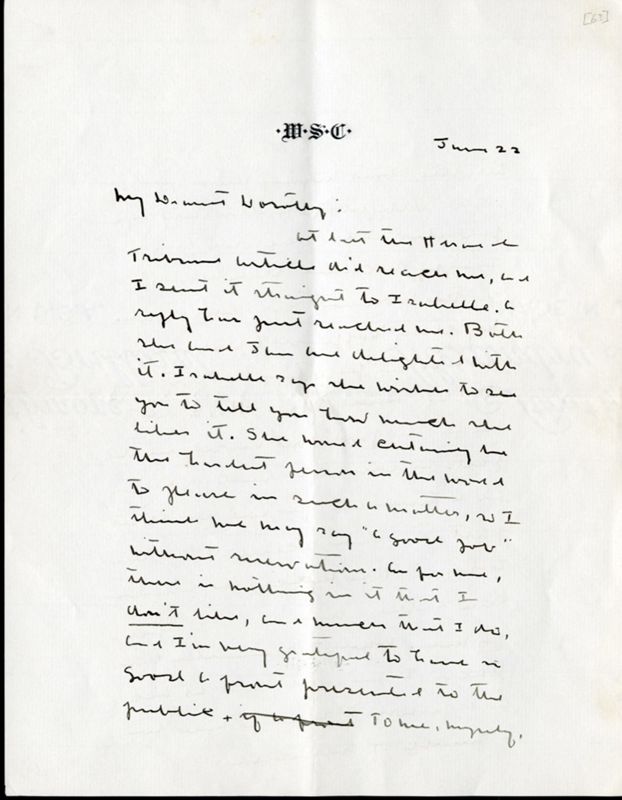 [63]
·W·S·C·
June 22
My Dearest Dorothy:
At last the Herald
Tribune article did reach me, and
I sent it straight to Isabelle. A
reply has just reached me. Both
she and Jan are delighted with
it. Isabelle says she wishes to see
you to tell you how much she
likes it. She would certainly be
the hardest person in the world
to please in such a matter, so I
think we may say "a good job"
without reservation. As for me,
there is nothing in it that I
don't like, and much that I do,
and I'm very grateful to have so
good a front presented to the
public + if a front To me, myself.